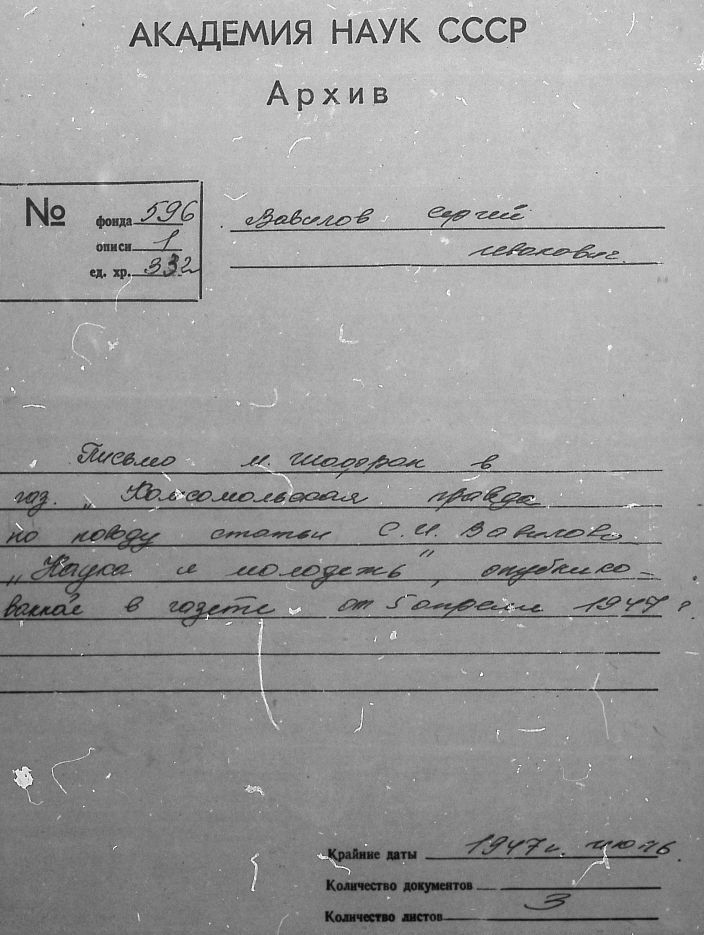 АКАДЕМИЯ НАУК СССР
Архив
№ фонда 596
описи 1
ед. хр. 332
Вавилов Сергей
Иванович.
Письмо М. в
газ. „Комсомольская правда
по поводу статьи С.И. Вавилова
„Наука и молодежь", опублико-
ванной в газете от 5 апреля 1947 г.
Крайние даты 1947 г.
Количество документов
Количество листов 3